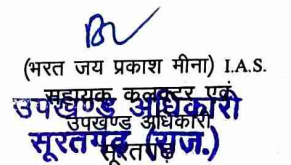 (भरत जय प्रकाश मीना) I.A.S.
सहायक कलक्टर एवं
उपखण्ड अधिकारी
उपखण्ड अधिकारी
सूरतगढ़ (राज.)
सूरतगढ़